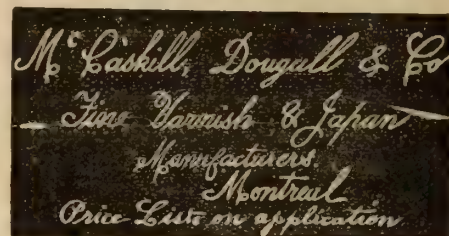 McCaskill, Dougall & Co
Fine Varnish & Japan
Manufacturers,
Montreal
Price Lists on application